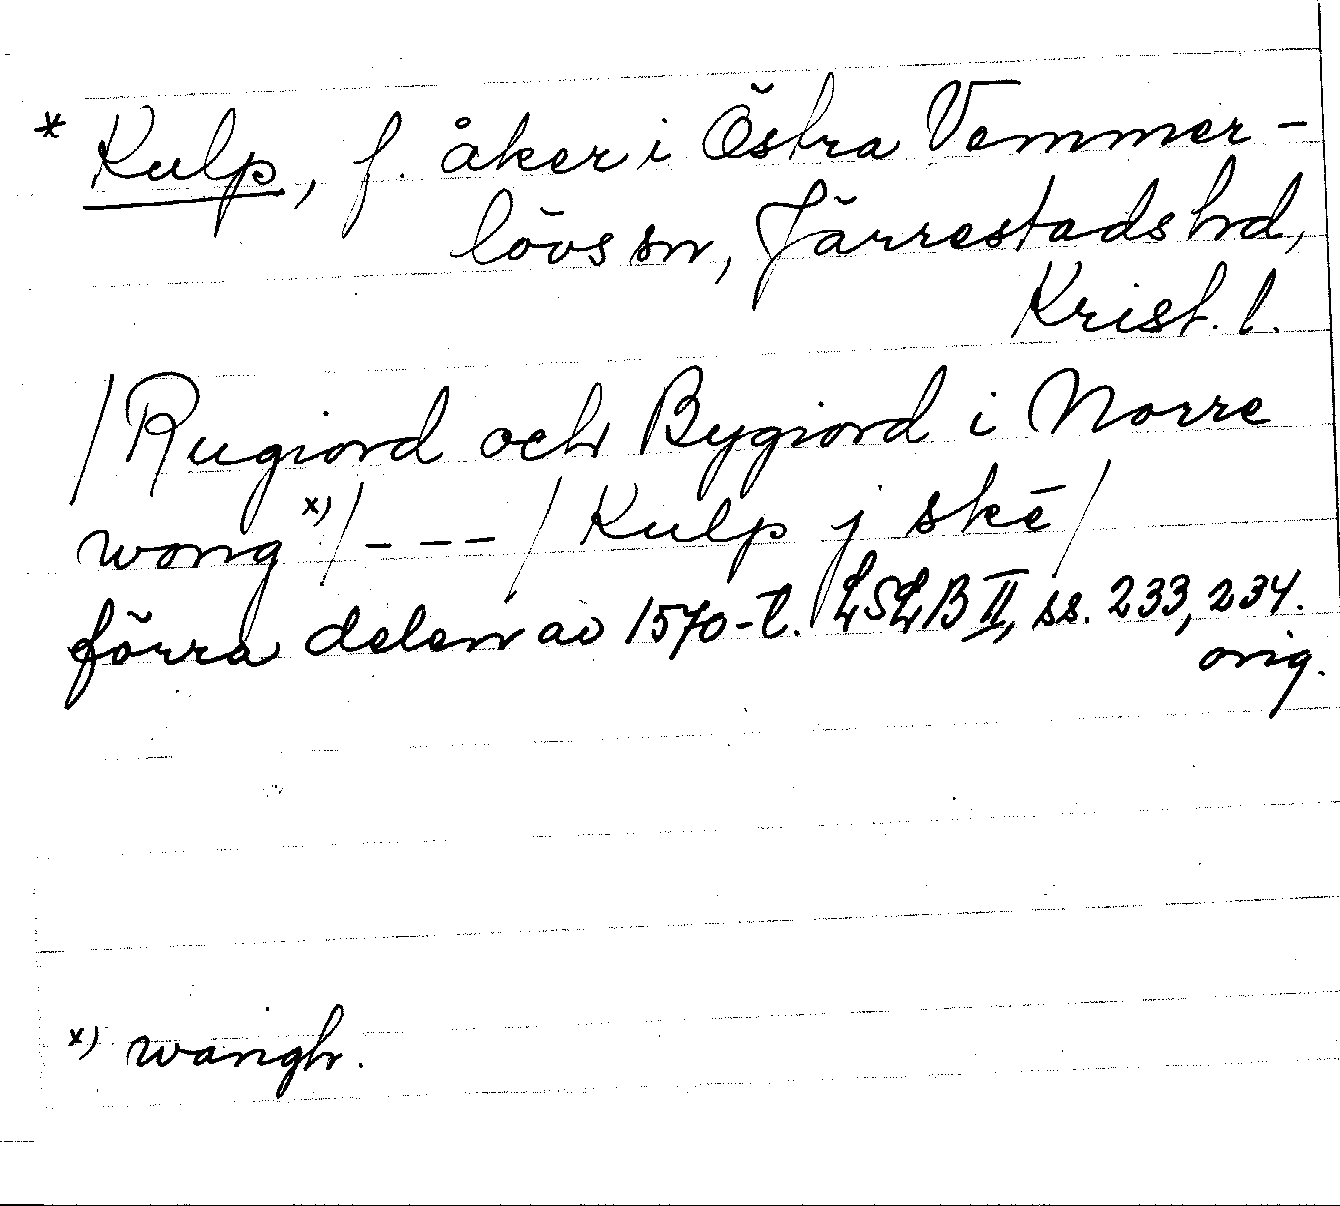 * Kulp, f. åker i Östra Vemmer-
lövs sn, Järrestads hd,
Krist. l.
/Rugiord och Bygiord i Norre
wong x)/ - - - / Kulp j skē/
förra delen av 1570-t. LSLB II, ss. 233, 234.
orig.
x) wangh.